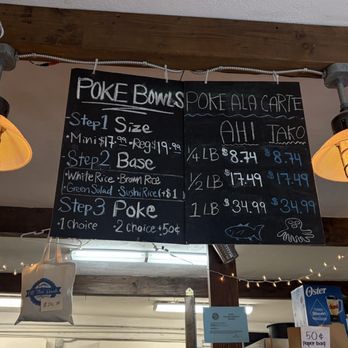 POKE BOWLS
Step 1 Size
• Mini $17.99 • Reg $19.99
Step 2 Base
White Rice • Brown Rice
• Green Salad • Sushi Rice (+$1)
Step 3 Poke
1 choice • 2 choice +50¢
POKE ALA CARTE
AHI TAKO
1/4 LB $8.74 $8.74
1/2 LB $17.49 $17.49
1 LB $34.99 $34.99
Oster
50¢